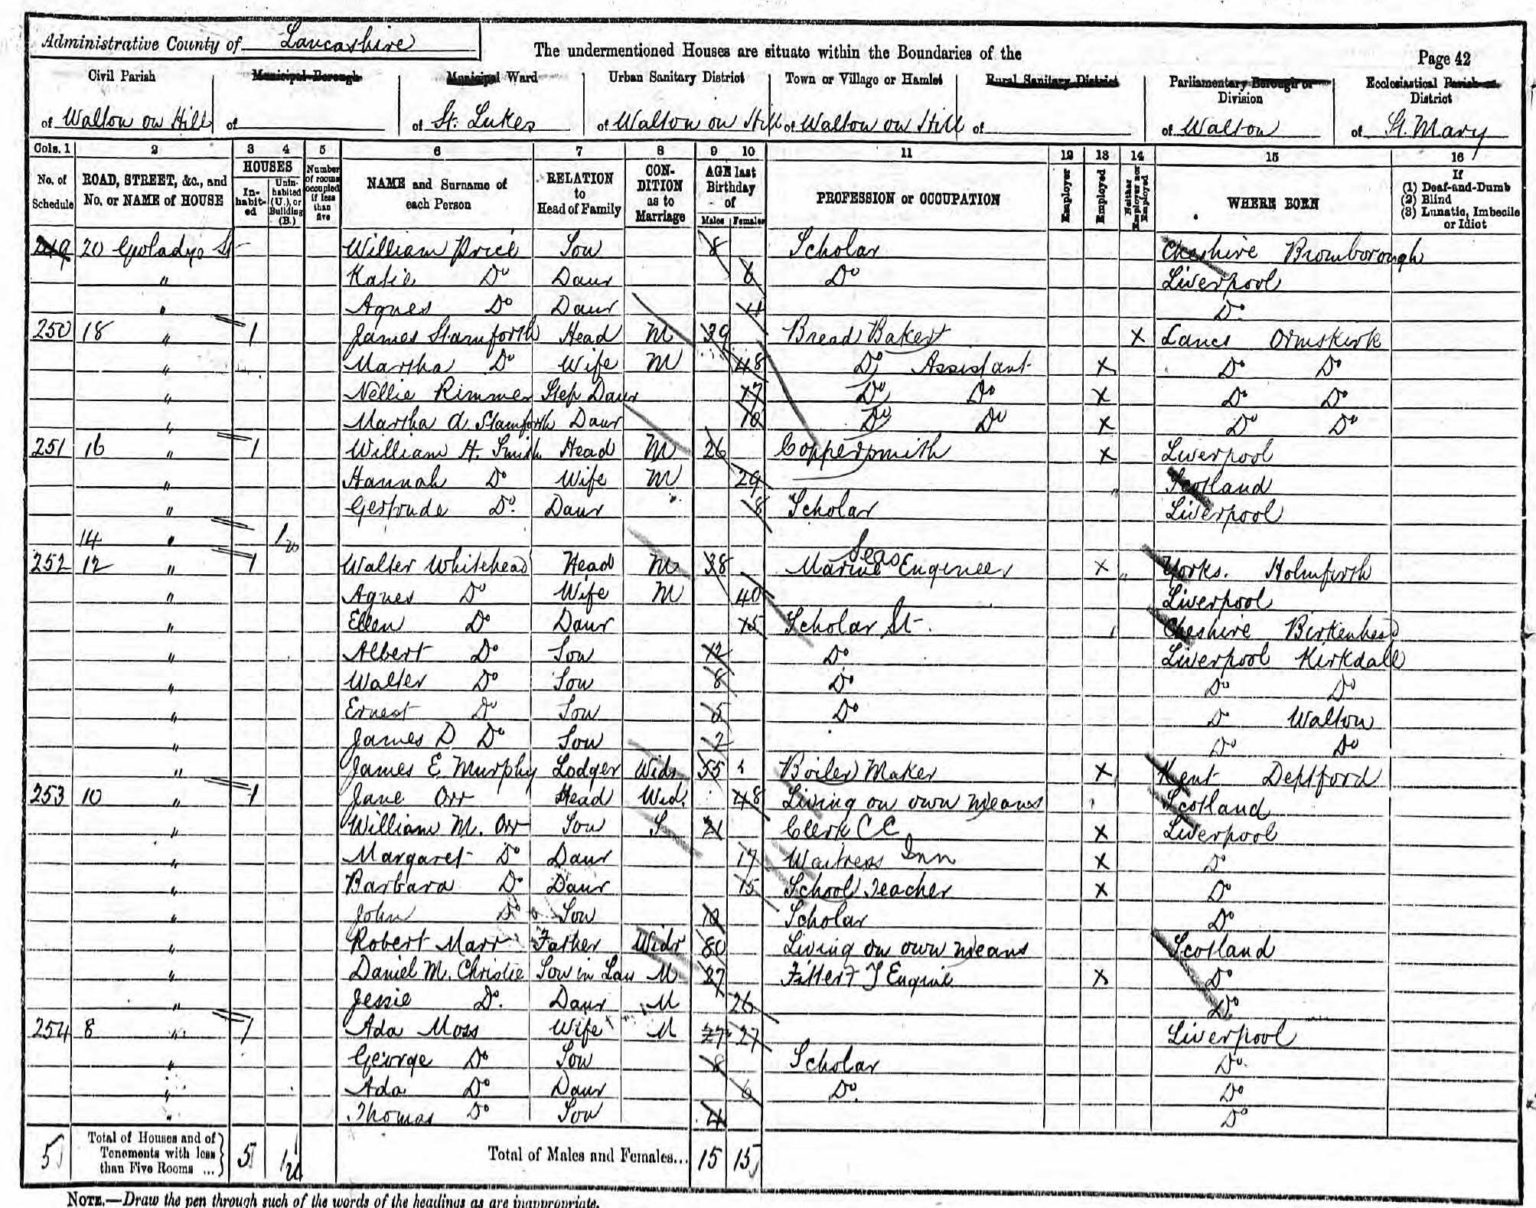 Administrative County of Lancashire
The undermentioned Houses are situate within the Boundaries of the
Page 42
Civil Parish Municipal Borough Municipal Ward Urban Sanitary District Town or Village or Hamlet Rural Sanitary District Parliamentary Borough or Division Ecclesiastical Parish or District
of Walton on Hill of of St. Lukes of Walton on Hill of Walton on Hill of of Walton of St. Mary
Cols. 1 2 3 4 5 6 7 8 9 10 11 12 13 14 15 16
No. of Schedule ROAD, STREET, &c., and No. or NAME of HOUSE HOUSES In-habit-ed Unin-habited (U.), or Building (B.) Number of rooms occupied if less than five NAME and Surname of each Person RELATION to Head of Family CON-DITION as to Marriage AGE last Birthday of Males Females PROFESSION or OCCUPATION Employer Employed Neither Employer nor Employed WHERE BORN If (1) Deaf-and-Dumb (2) Blind (3) Lunatic, Imbecile or Idiot
249 20 Gwladys St William Price Son 8 Scholar Cheshire Bromborough
" Katie Do Daur 6 Do Liverpool
" Agnes Do Daur 4 Do
250 18 " 1 James Stamforth Head M 39 Bread Baker X Lancs Ormskirk
" Martha Do Wife M 48 Do Assistant X Do Do
" Nellie Rimmer Step Daur 17 Do Do X Do Do
" Martha A. Stamforth Daur Do Do X Do Do
251 16 " 1 William H. Smith Head M 26 Coppersmith X Liverpool
" Hannah Do Wife M 29 Scotland
" Gertrude Do Daur 8 Scholar Liverpool
14 " 1
252 12 " 1 Walter Whitehead Head M 38 Marine Seas Engineer X Yorks. Holmfirth
" Agnes Do Wife M 40 Liverpool
" Ellen Do Daur 15 Scholar St. Cheshire Birkenhead
" Albert Do Son 12 Do Liverpool Kirkdall
" Walter Do Son 8 Do Do Do
" Ernest Do Son 5 Do Do Walton
" James D Do Son 2 Do Do
" James E. Murphy Lodger Widr 55 Boiler Maker X Kent Deptford
253 10 " 1 Jane Orr Head Wid. 48 Living on own means Scotland
" William M. Orr Son S 21 Clerk C C X Liverpool
" Margaret Do Daur 17 Waitress Inn X Do
" Barbara Do Daur 15 School Teacher X Do
" John Do Son Scholar Do
" Robert Marr Father Widr 80 Living on own means Scotland
" Daniel M. Christie Son in Law M 27 Fitter X Do
" Jessie Do. Daur M 26 Do
254 8 " 1 Ada Moss Wife M 27 27 Liverpool
" George Do Son 8 Scholar Do
" Ada Do Daur 6 Do. Do
" Thomas Do Son 4 Do
5 Total of Houses and of Tenements with less than Five Rooms ... 5 Total of Males and Females... 15 15
NOTE.—Draw the pen through such of the words of the headings as are inappropriate.